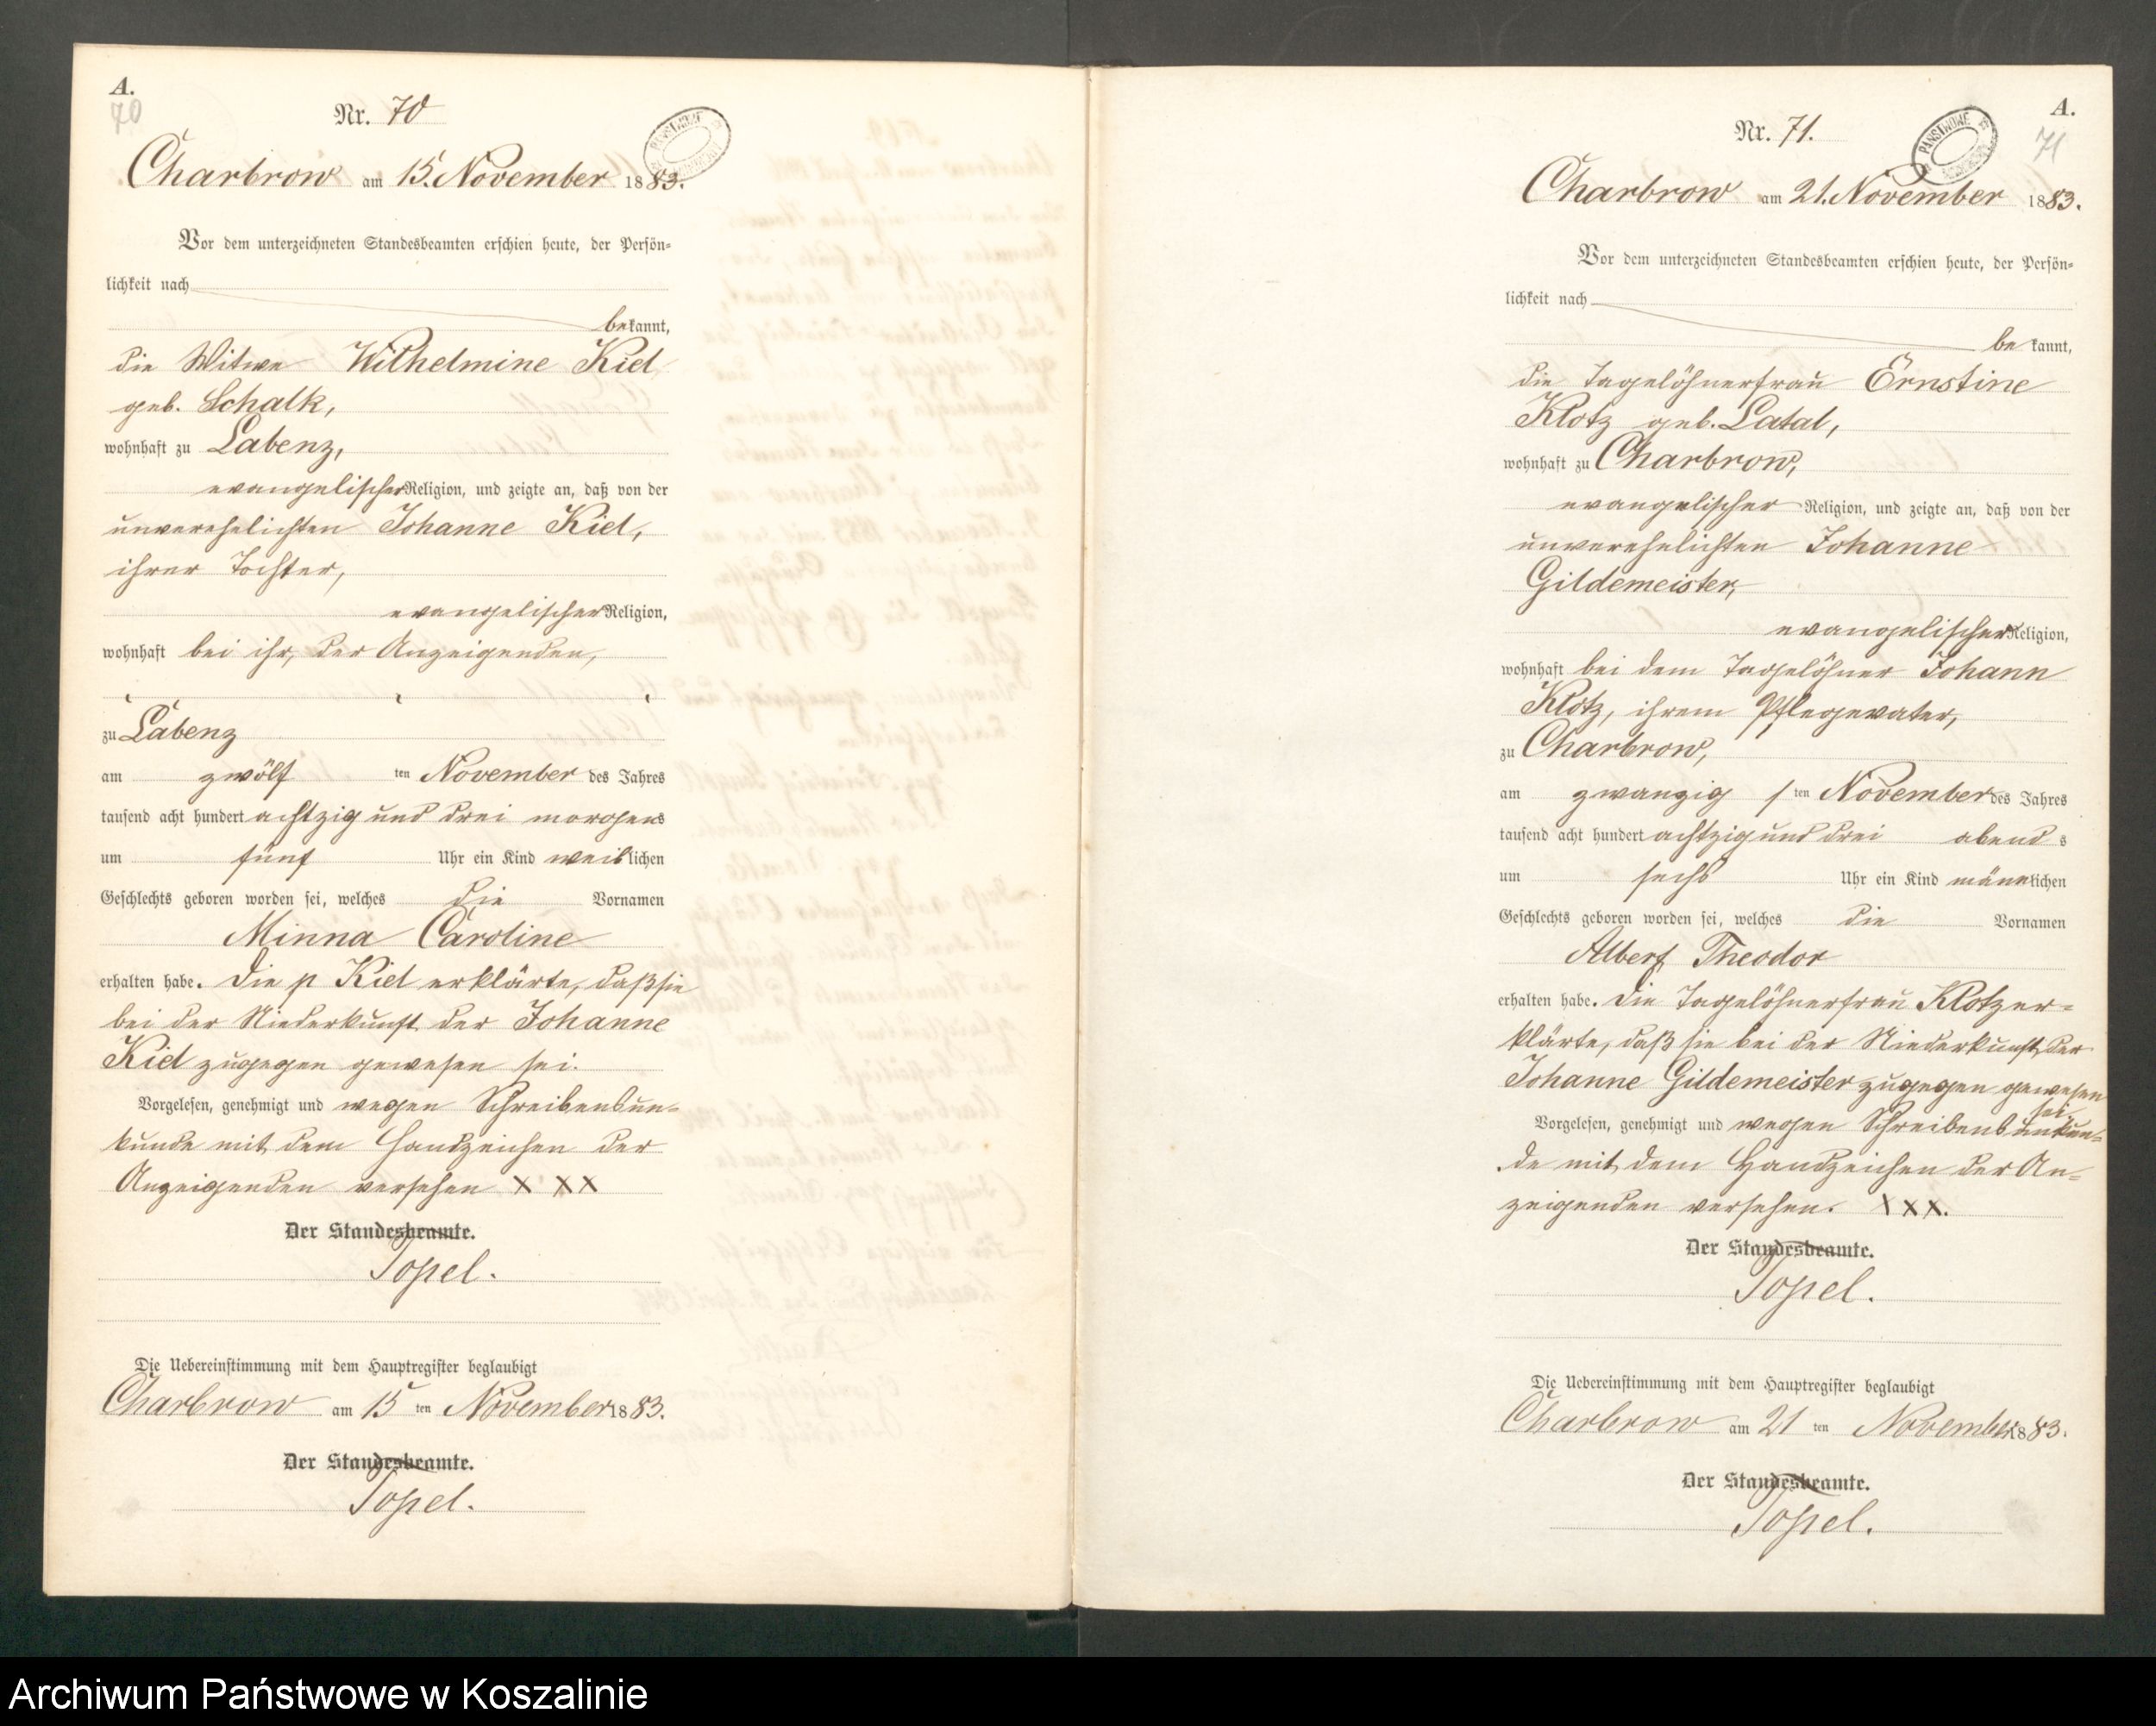 A.
70
Nr. 70
PANSTWOWE
Charbrow am 15. November 1883.
Vor dem unterzeichneten Standesbeamten erschien heute, der Persön-
lichkeit nach
bekannt,
die Witwe Wilhelmine Kiel
geb. Schalk,
wohnhaft zu Labenz,
evangelischer Religion, und zeigte an, daß von der
unverehelichten Johanne Kiel,
ihrer Tochter,
evangelischer Religion,
wohnhaft bei ihr, der Anzeigenden,
zu Labenz
am zwölf ten November des Jahres
tausend acht hundert achtzig und drei morgens
um fünf Uhr ein Kind weiblichen
Geschlechts geboren worden sei, welches die Vornamen
Minna Caroline
erhalten habe. Die p Kiel erklärte, daß sie
bei der Niederkunft der Johanne
Kiel zugegen gewesen sei.
Vorgelesen, genehmigt und wegen Schreibensun-
kunde mit dem Handzeichen der
Anzeigenden versehen X X X
Der Standesbeamte.
Topel.
Die Uebereinstimmung mit dem Hauptregister beglaubigt
Charbrow am 15 ten November 1883.
Der Standesbeamte.
Topel.
A.
71
Nr. 71.
PANSTWOWE
Charbrow am 21. November 1883.
Vor dem unterzeichneten Standesbeamten erschien heute, der Persön-
lichkeit nach
bekannt,
die Tagelöhnerfrau Ernstine
Klotz geb. Latal,
wohnhaft zu Charbrow,
evangelischer Religion, und zeigte an, daß von der
unverehelichten Johanne
Gildemeister,
evangelischer Religion,
wohnhaft bei dem Tagelöhner Johann
Klotz, ihrem Pflegevater,
zu Charbrow,
am zwanzig sten November des Jahres
tausend acht hundert achtzig und drei abends
um sechs Uhr ein Kind männlichen
Geschlechts geboren worden sei, welches die Vornamen
Albert Theodor
erhalten habe. Die Tagelöhnerfrau Klotz er-
klärte, daß sie bei der Niederkunft der
Johanne Gildemeister zugegen gewesen
sei.
Vorgelesen, genehmigt und wegen Schreibensunkun-
de mit dem Handzeichen der An-
zeigenden versehen. X X X.
Der Standesbeamte.
Topel.
Die Uebereinstimmung mit dem Hauptregister beglaubigt
Charbrow am 21 ten November 1883.
Der Standesbeamte.
Topel.
Archiwum Państwowe w Koszalinie